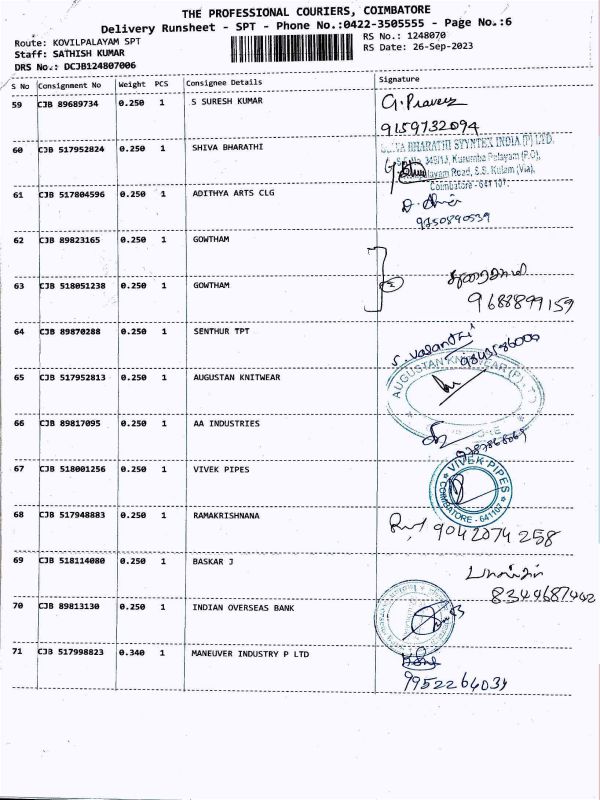 THE PROFESSIONAL COURIERS, COIMBATORE
Delivery Runsheet - SPT - Phone No.:0422-3505555 - Page No.:6
Route: KOVILPALAYAM SPT
Staff: SATHISH KUMAR
DRS No.: DCJB124807006
RS No.: 1248070
RS Date: 26-Sep-2023
S No Consignment No Weight PCS Consignee Details Signature
59 CJB 89689734 0.250 1 S SURESH KUMAR
9159732094
60 CJB 517952824 0.250 1 SHIVA BHARATHI
BHARATHI SYYNTEX INDIA (P) LTD.
349/13, Kurumba Palayam (P.O),
Road, S.S. Kulam (Via),
Coimbatore - 641 107.
61 CJB 517804596 0.250 1 ADITHYA ARTS CLG
9750890539
62 CJB 89823165 0.250 1 GOWTHAM
63 CJB 518051238 0.250 1 GOWTHAM
9688899159
64 CJB 89870288 0.250 1 SENTHUR TPT
S. Vasanthi
65 CJB 517952813 0.250 1 AUGUSTAN KNITWEAR
AUGUSTAN KNITWEAR (P) LTD
66 CJB 89817095 0.250 1 AA INDUSTRIES
67 CJB 518001256 0.250 1 VIVEK PIPES
VIVEK PIPES
COIMBATORE - 641107
68 CJB 517948883 0.250 1 RAMAKRISHNANA
9042074258
69 CJB 518114080 0.250 1 BASKAR J
8344687402
70 CJB 89813130 0.250 1 INDIAN OVERSEAS BANK
71 CJB 517998823 0.340 1 MANEUVER INDUSTRY P LTD
9952264034